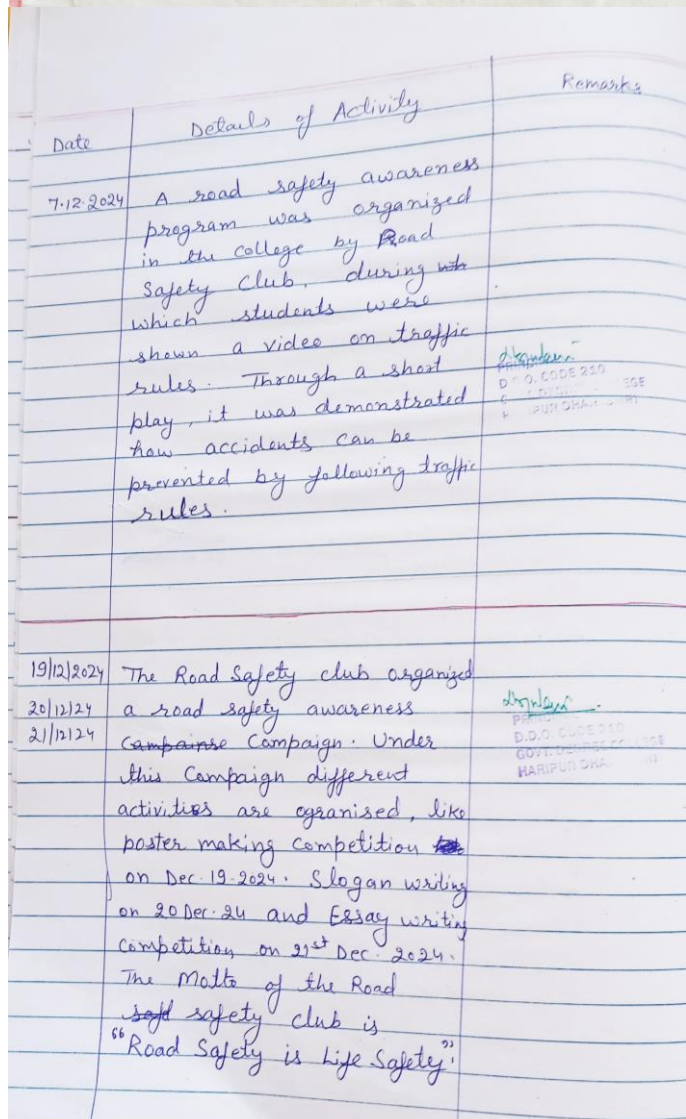 Date
Details of Activity
Remarks
7.12.2024
A road safety awareness
program was organized
in the college by Road
Safety Club, during
which students were
shown a video on traffic
rules. Through a short
play, it was demonstrated
how accidents can be
prevented by following traffic
rules.
D.O. CODE 210
19/12/2024
20/12/24
21/12/24
The Road Safety club organized
a road safety awareness
Campainse Campaign. Under
this Campaign different
activities are ogranised, like
poster making competition
on Dec-19-2024. Slogan writing
on 20 Dec. 24 and Essay writing
competition on 21st Dec. 2024.
The Motto of the Road
safety club is
"Road Safety is Life Safety".
D.D.O. CODE 210
GOVT. DEGREE COLLEGE
HARIPUR